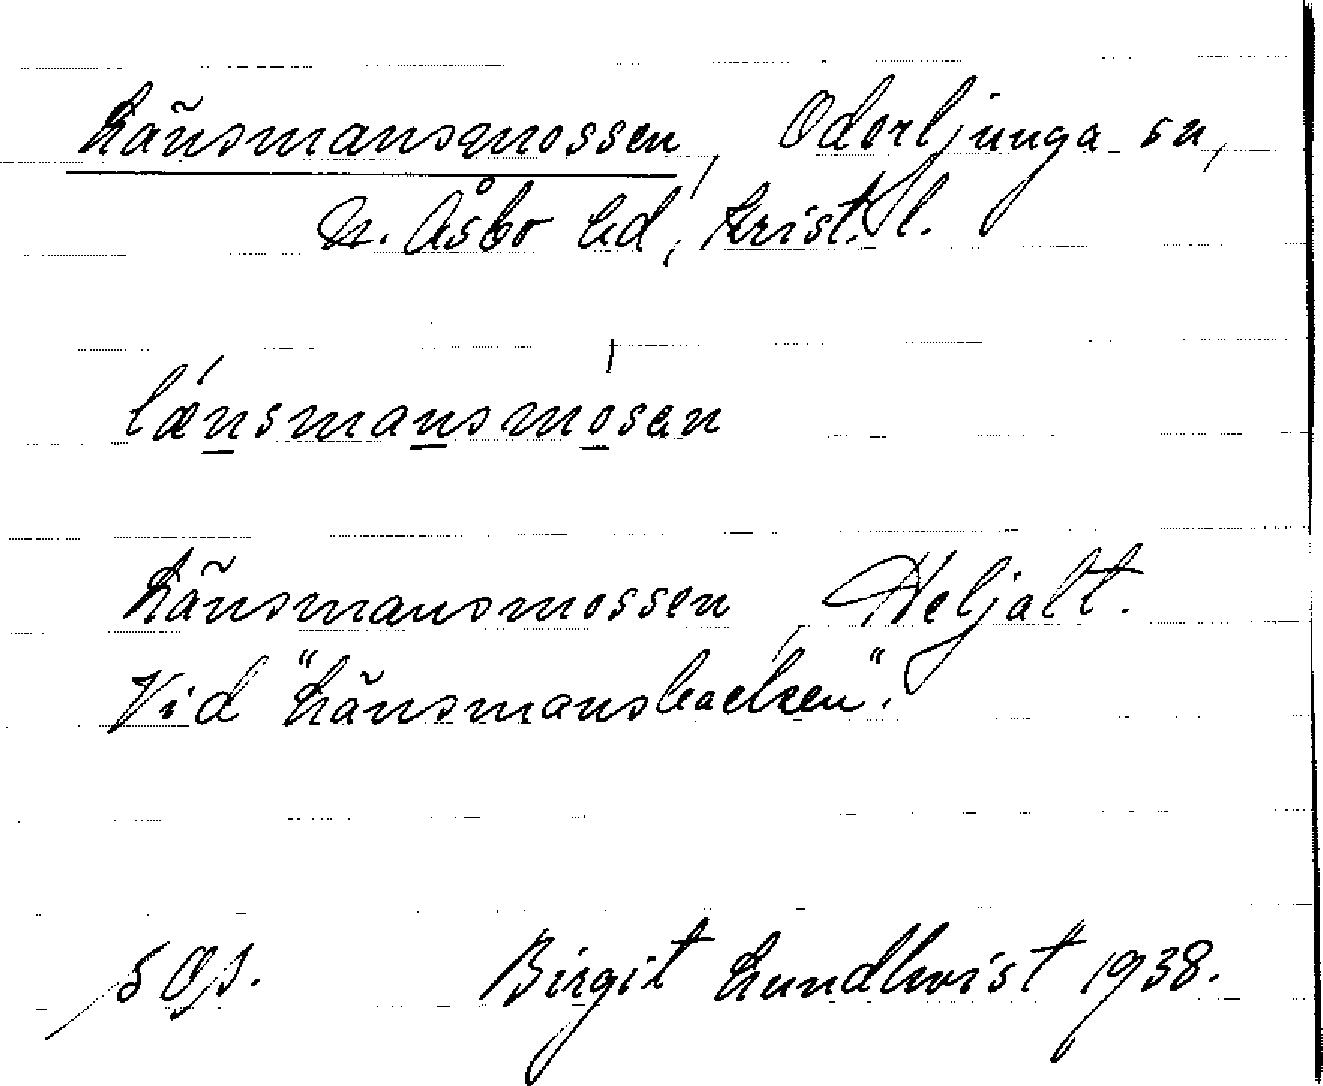 Länsmansmossen, Oderljunga sn,
N. Åsbo hd, Krist. l.
lænsmansmosen
Länsmansmossen, Heljalt.
Vid "Länsmansbacken".
Birgit Lundkvist 1938.